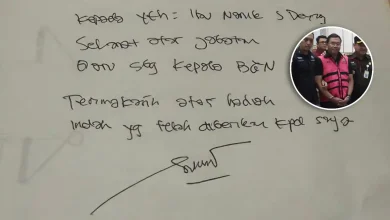 Kepada Yth = Ibu Nanik S Deyang
Selamat atas jabatan
Dan sbg Kepala BGN
Terimakasih atas hadiah
Indah yg telah diberikan kpd saya